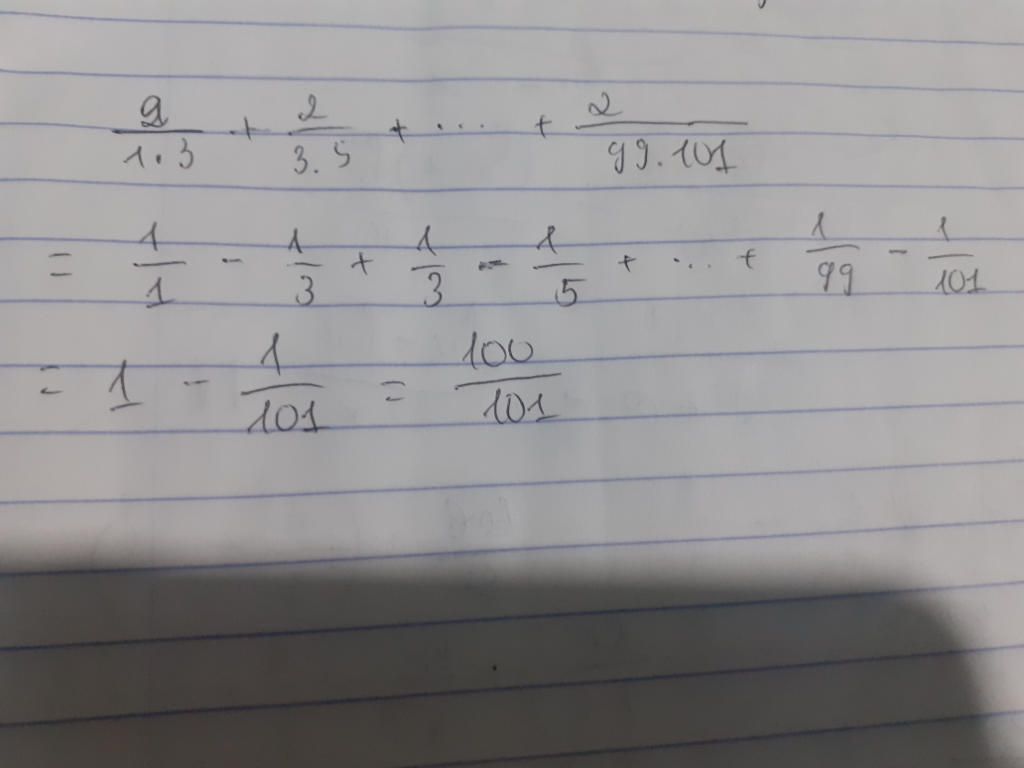 2/1.3 + 2/3.5 + ... + 2/99.101
= 1/1 - 1/3 + 1/3 - 1/5 + ... + 1/99 - 1/101
= 1 - 1/101 = 100/101